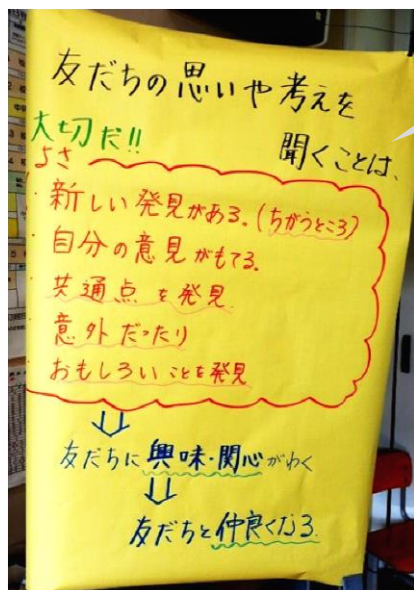 友だちの思いや考えを
聞くことは、
大切だ!!
よさ
新しい発見がある。(ちがうところ)
自分の意見がもてる。
共通点を発見
意外だったり
おもしろいことを発見
友だちに興味・関心がわく
友だちと仲良くなる